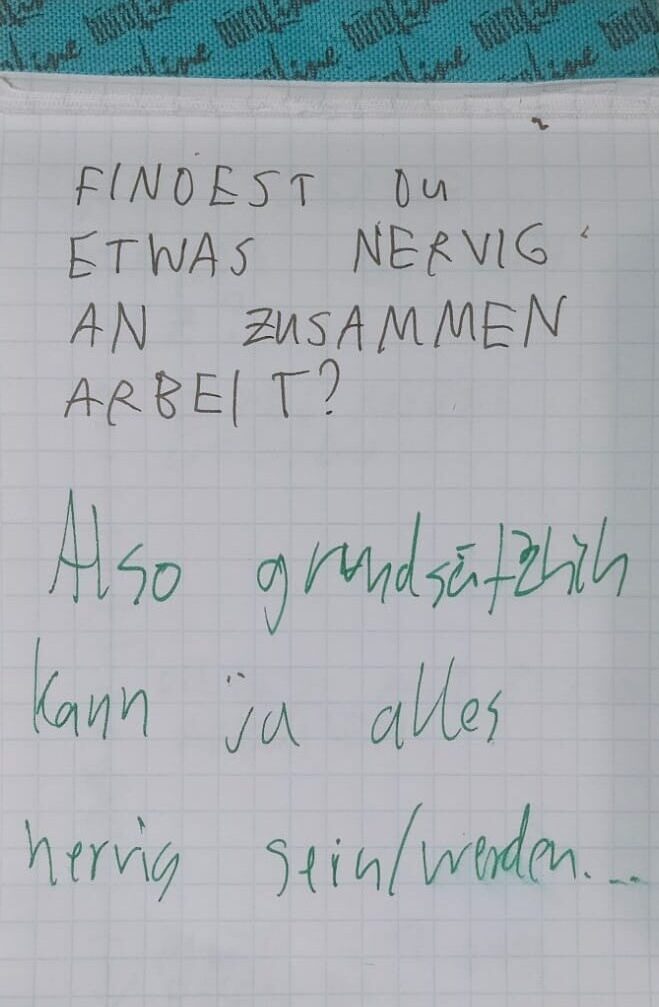 FINDEST DU
ETWAS NERVIG
AN ZUSAMMEN
ARBEIT?
Also grundsätzlich
kann ja alles
nervig sein/werden...